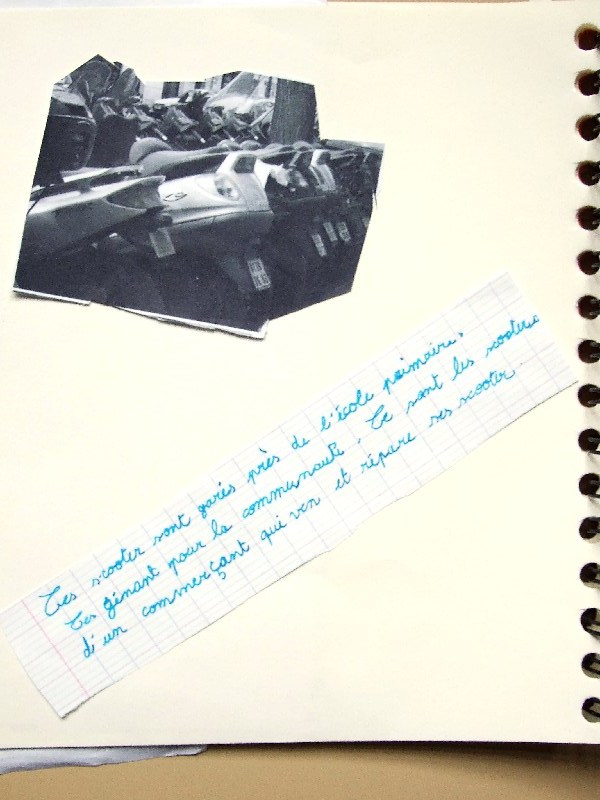 Ces scooter sont garés près de l'école primaire.
Ces génant pour la communauté. Ce sont les scooters
d'un commerçant qui ven et répare ses scooter.